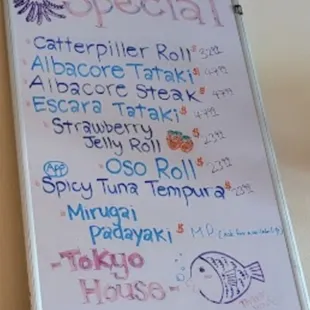 Special
Catterpiller Roll $
Albacore Tataki $
Albacore Steak $
Escara Tataki $
Strawberry
Jelly Roll $
Oso Roll $
APP
Spicy Tuna Tempura $
Mirugai
Padayaki $ M.P. (ask for availability)
-Tokyo
House-